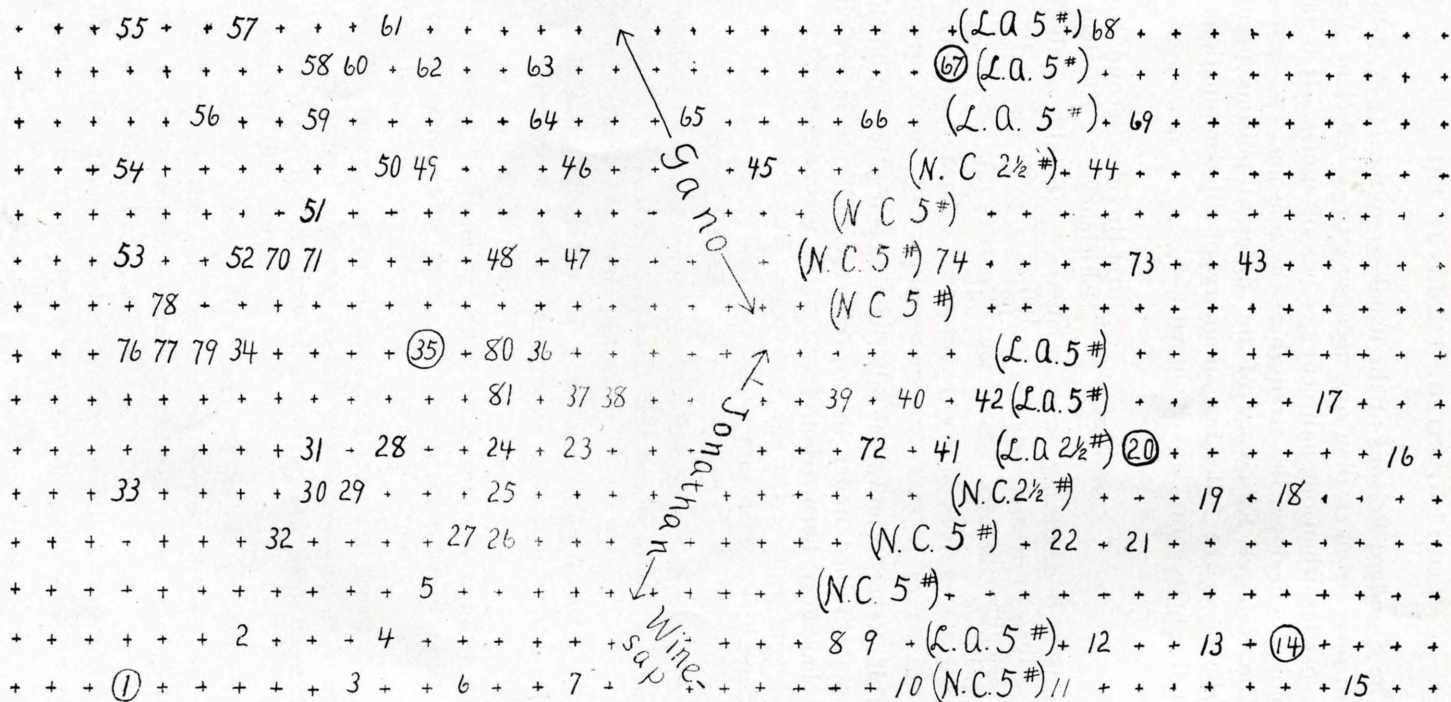 + + + 55 + + 57 + + + 61 + + + + + + + + + + + + + + (L. A 5 #) 68 + + + + + + + + +
+ + + + + + + + 58 60 + 62 + + 63 + + + + + + + + + + 67 (L.A. 5 #) + + + + + + + + +
+ + + + + 56 + + 59 + + + + + 64 + + + 65 + + + + 66 + (L. A. 5 #) + 69 + + + + + + + +
+ + + 54 + + + + + + 50 49 + + + 46 + + + + 45 + + + (N. C 2½ #) + 44 + + + + + + + + +
+ + + + + + + + 51 + + + + + + + + + + + + + (N C 5 #) + + + + + + + + + + + + +
+ + + 53 + + 52 70 71 + + + + 48 + 47 + + + + + (N. C. 5 #) 74 + + + + 73 + + 43 + + + + +
+ + + + 78 + + + + + + + + + + + + + + + + + (N C 5 #) + + + + + + + + + + + + +
+ + + 76 77 79 34 + + + + 35 + 80 36 + + + + + + + + + + + (L.A. 5 #) + + + + + + + + +
+ + + + + + + + + + + + + 81 + 37 38 + + + + + 39 + 40 + 42 (L.A. 5 #) + + + + + 17 + + +
+ + + + + + + + 31 + 28 + + 24 + 23 + + + + + + + 72 + 41 (L.A 2½ #) 20 + + + + + + 16 +
+ + + 33 + + + + 30 29 + + + 25 + + + + + + + + + + + (N.C. 2½ #) + + + 19 + 18 + + + +
+ + + + + + + 32 + + + + 27 26 + + + + + + + + + (N. C. 5 #) + 22 + 21 + + + + + + + +
+ + + + + + + + + + + 5 + + + + + + + + + + (N.C. 5 #) + + + + + + + + + + + + + +
+ + + + + + 2 + + + 4 + + + + + + + + + + + 8 9 + (L. A. 5 #) + 12 + + 13 + 14 + + + +
+ + + 1 + + + + + 3 + + 6 + + 7 + + + + + + + + 10 (N.C. 5 #) 11 + + + + + + + 15 + +
Gano
Jonathan
Wine-
sap